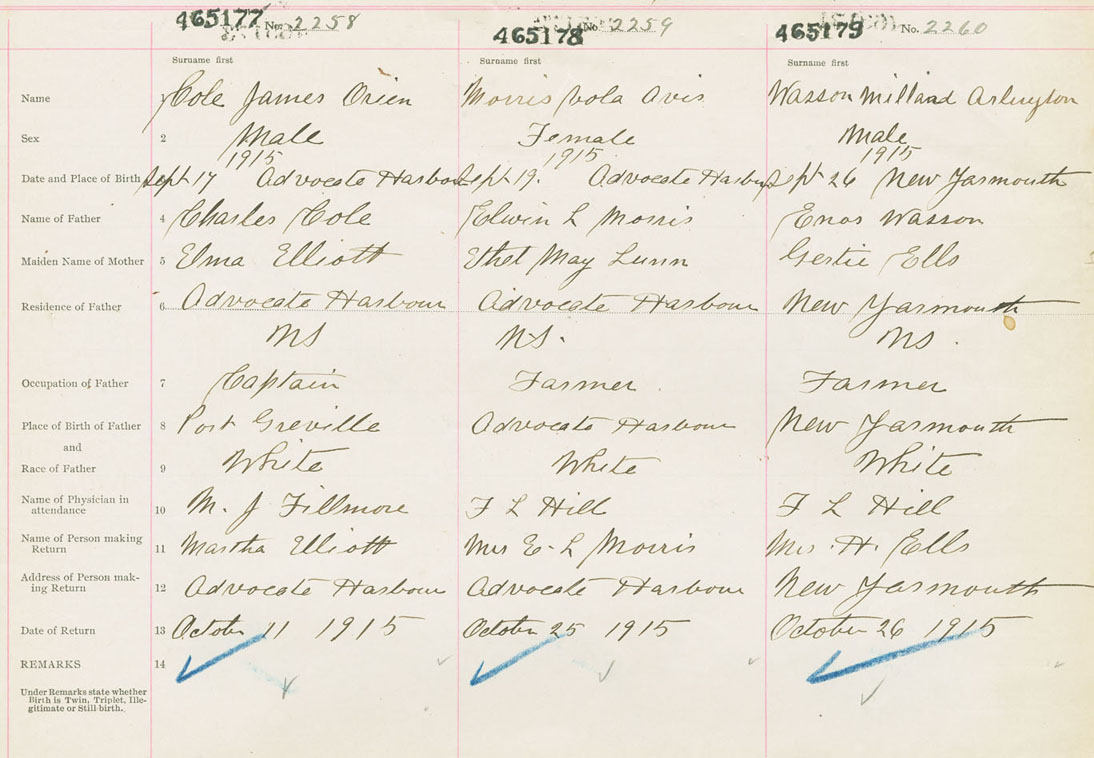 465177 No. 2258 465178 No. 2259 465179 No. 2260
Surname first Surname first Surname first
Name 1 Cole James Orien Morris Vola Avis Wasson Millard Arlington
Sex 2 Male Female Male
1915 1915 1915
Date and Place of Birth Sept 17 Advocate Harbour Sept 19. Advocate Harbour Sept 26 New Yarmouth
Name of Father 4 Charles Cole Elwin L Morris Enos Wasson
Maiden Name of Mother 5 Elma Elliott Ethel May Lunn Gertie Ells
Residence of Father 6 Advocate Harbour Advocate Harbour New Yarmouth
NS NS. NS.
Occupation of Father 7 Captain Farmer Farmer
Place of Birth of Father 8 Port Greville Advocate Harbour New Yarmouth
and
Race of Father 9 White White White
Name of Physician in
attendance 10 M. J Fillmore F L Hill F L Hill
Name of Person making
Return 11 Martha Elliott Mrs E. L Morris Mrs. H. Ells
Address of Person mak-
ing Return 12 Advocate Harbour Advocate Harbour New Yarmouth
Date of Return 13 October 11 1915 October 25 1915 October 26 1915
REMARKS 14
Under Remarks state whether
Birth is Twin, Triplet, Ille-
gitimate or Still-birth.